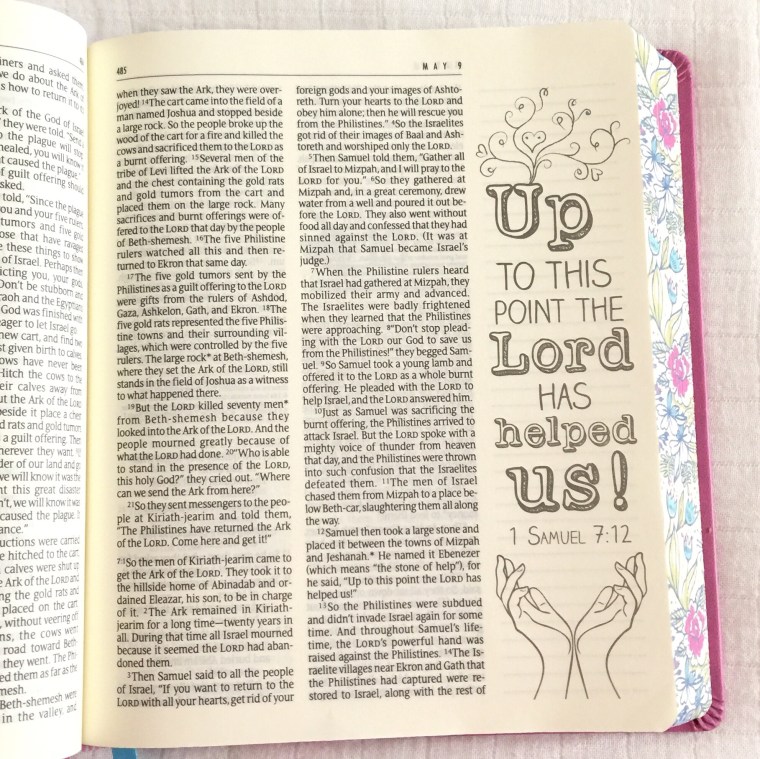 iners and asked
we do about the Ark
s how to return it
rk of the God of
they were told. "Send
the plague will
healed, you will know
t caused the plague."
of guilt offering should
sked.
told, "Since the plague
you and your five rulers,
tumors and five gold
ose that have ravaged
e these things to show
of Israel. Perhaps then
icting you, your gods,
Don't be stubborn and
raoh and the Egyptians
God was finished with
eager to let Israel go
new cart, and find two
st given birth to calves.
ows have never been
Hitch the cows to the
eir calves away from
ut the Ark of the LORD
beside it place a chest
d rats and gold tumors
a guilt offering. Then
herever they want.
der of our land and go
we will know it was the
nt this great disaster
n't, we will know it was
caused the plague. It
ance."
uctions were carried
e hitched to the cart,
calves were shut up
e Ark of the LORD and
ng the gold rats and
placed on the cart.
without veering off
ns, the cows went
road toward Beth-
they went. The Phi-
ed them as far as the
mesh.
Beth-shemesh were
in the valley, and
485
MAY 9
when they saw the Ark, they were over-
joyed! 14The cart came into the field of a
man named Joshua and stopped beside
a large rock. So the people broke up the
wood of the cart for a fire and killed the
cows and sacrificed them to the LORD as
a burnt offering. 15Several men of the
tribe of Levi lifted the Ark of the LORD
and the chest containing the gold rats
and gold tumors from the cart and
placed them on the large rock. Many
sacrifices and burnt offerings were of-
fered to the LORD that day by the people
of Beth-shemesh. 16The five Philistine
rulers watched all this and then re-
turned to Ekron that same day.
17The five gold tumors sent by the
Philistines as a guilt offering to the LORD
were gifts from the rulers of Ashdod,
Gaza, Ashkelon, Gath, and Ekron. 18The
five gold rats represented the five Philis-
tine towns and their surrounding vil-
lages, which were controlled by the five
rulers. The large rock* at Beth-shemesh,
where they set the Ark of the LORD, still
stands in the field of Joshua as a witness
to what happened there.
19But the LORD killed seventy men*
from Beth-shemesh because they
looked into the Ark of the LORD. And the
people mourned greatly because of
what the LORD had done. 20"Who is able
to stand in the presence of the LORD,
this holy God?" they cried out. "Where
can we send the Ark from here?"
21So they sent messengers to the peo-
ple at Kiriath-jearim and told them,
"The Philistines have returned the Ark
of the LORD. Come here and get it!"
7:1So the men of Kiriath-jearim came to
get the Ark of the LORD. They took it to
the hillside home of Abinadab and or-
dained Eleazar, his son, to be in charge
of it. 2The Ark remained in Kiriath-
jearim for a long time—twenty years in
all. During that time all Israel mourned
because it seemed the LORD had aban-
doned them.
3Then Samuel said to all the people
of Israel, "If you want to return to the
LORD with all your hearts, get rid of your
foreign gods and your images of Ashto-
reth. Turn your hearts to the LORD and
obey him alone; then he will rescue you
from the Philistines." 4So the Israelites
got rid of their images of Baal and Ash-
toreth and worshiped only the LORD.
5Then Samuel told them, "Gather all
of Israel to Mizpah, and I will pray to the
LORD for you." 6So they gathered at
Mizpah and, in a great ceremony, drew
water from a well and poured it out be-
fore the LORD. They also went without
food all day and confessed that they had
sinned against the LORD. (It was at
Mizpah that Samuel became Israel's
judge.)
7When the Philistine rulers heard
that Israel had gathered at Mizpah, they
mobilized their army and advanced.
The Israelites were badly frightened
when they learned that the Philistines
were approaching. 8"Don't stop plead-
ing with the LORD our God to save us
from the Philistines!" they begged Sam-
uel. 9So Samuel took a young lamb and
offered it to the LORD as a whole burnt
offering. He pleaded with the LORD to
help Israel, and the LORD answered him.
10Just as Samuel was sacrificing the
burnt offering, the Philistines arrived to
attack Israel. But the LORD spoke with a
mighty voice of thunder from heaven
that day, and the Philistines were thrown
into such confusion that the Israelites
defeated them. 11The men of Israel
chased them from Mizpah to a place be-
low Beth-car, slaughtering them all along
the way.
12Samuel then took a large stone and
placed it between the towns of Mizpah
and Jeshanah.* He named it Ebenezer
(which means "the stone of help"), for
he said, "Up to this point the LORD has
helped us!"
13So the Philistines were subdued
and didn't invade Israel again for some
time. And throughout Samuel's life-
time, the LORD's powerful hand was
raised against the Philistines. 14The Is-
raelite villages near Ekron and Gath that
the Philistines had captured were re-
stored to Israel, along with the rest of
Up
TO THIS
POINT THE
Lord
HAS
helped
us!
1 SAMUEL 7:12